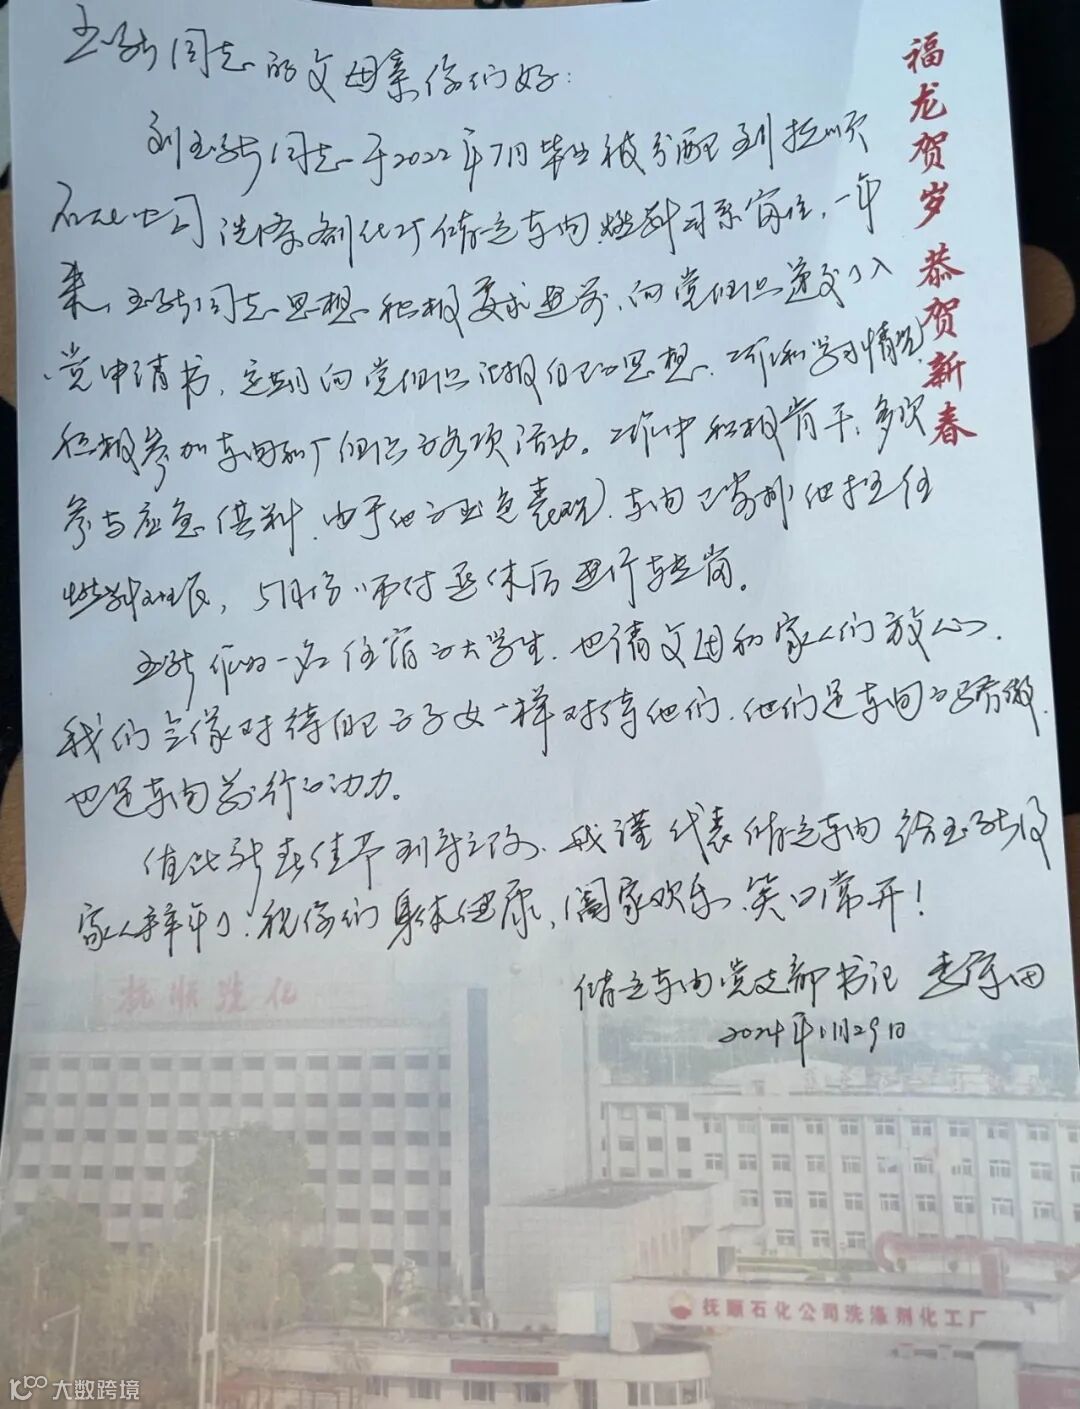 玉新同志的父母亲你们好：
刘玉新同志于2022年7月毕业被分配到抚顺
石化公司洗涤剂化工厂储运车间燃料司泵岗位，一年
来，玉新同志思想积极要求进步，向党组织递交了入
党申请书，定期向党组织汇报自己的思想、工作和学习情况，
积极参加车间和厂组织的各项活动。工作中积极肯干，多次
参与应急供料，由于他的出色表现，车间已安排他担任
燃料班长，5月份师付退休后进行转岗。
玉新作为一名住宿的大学生，也请父母和家人们放心，
我们会像对待自己的子女一样对待他们，他们是车间的骄傲，
也是车间前行的动力。
值此新春佳节到来之际，我谨代表储运车间给玉新及
家人拜年了，祝你们身体健康，阖家欢乐，笑口常开！
储运车间党支部书记
2024年1月29日
福龙贺岁 恭贺新春
抚顺石化
抚顺石化公司洗涤剂化工厂
大数跨境